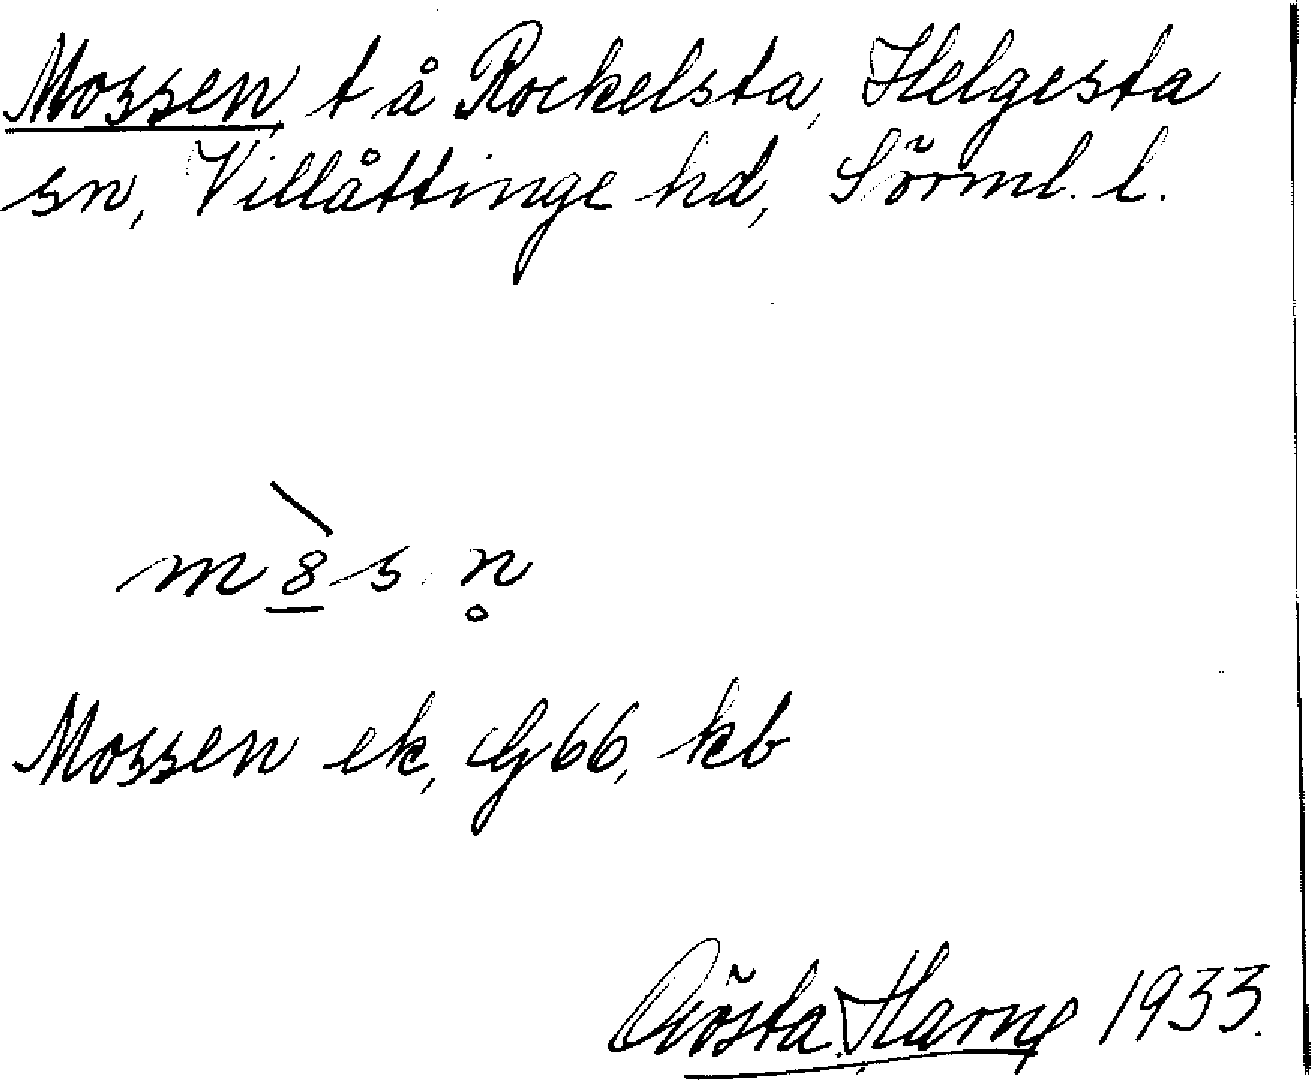 Mossen, t å Rockelsta, Helgesta
sn, Villåttinge hd, Sörml. l.
m8̲̀s n̥
Mossen ek, G66, kb
Gösta Harne 1933.